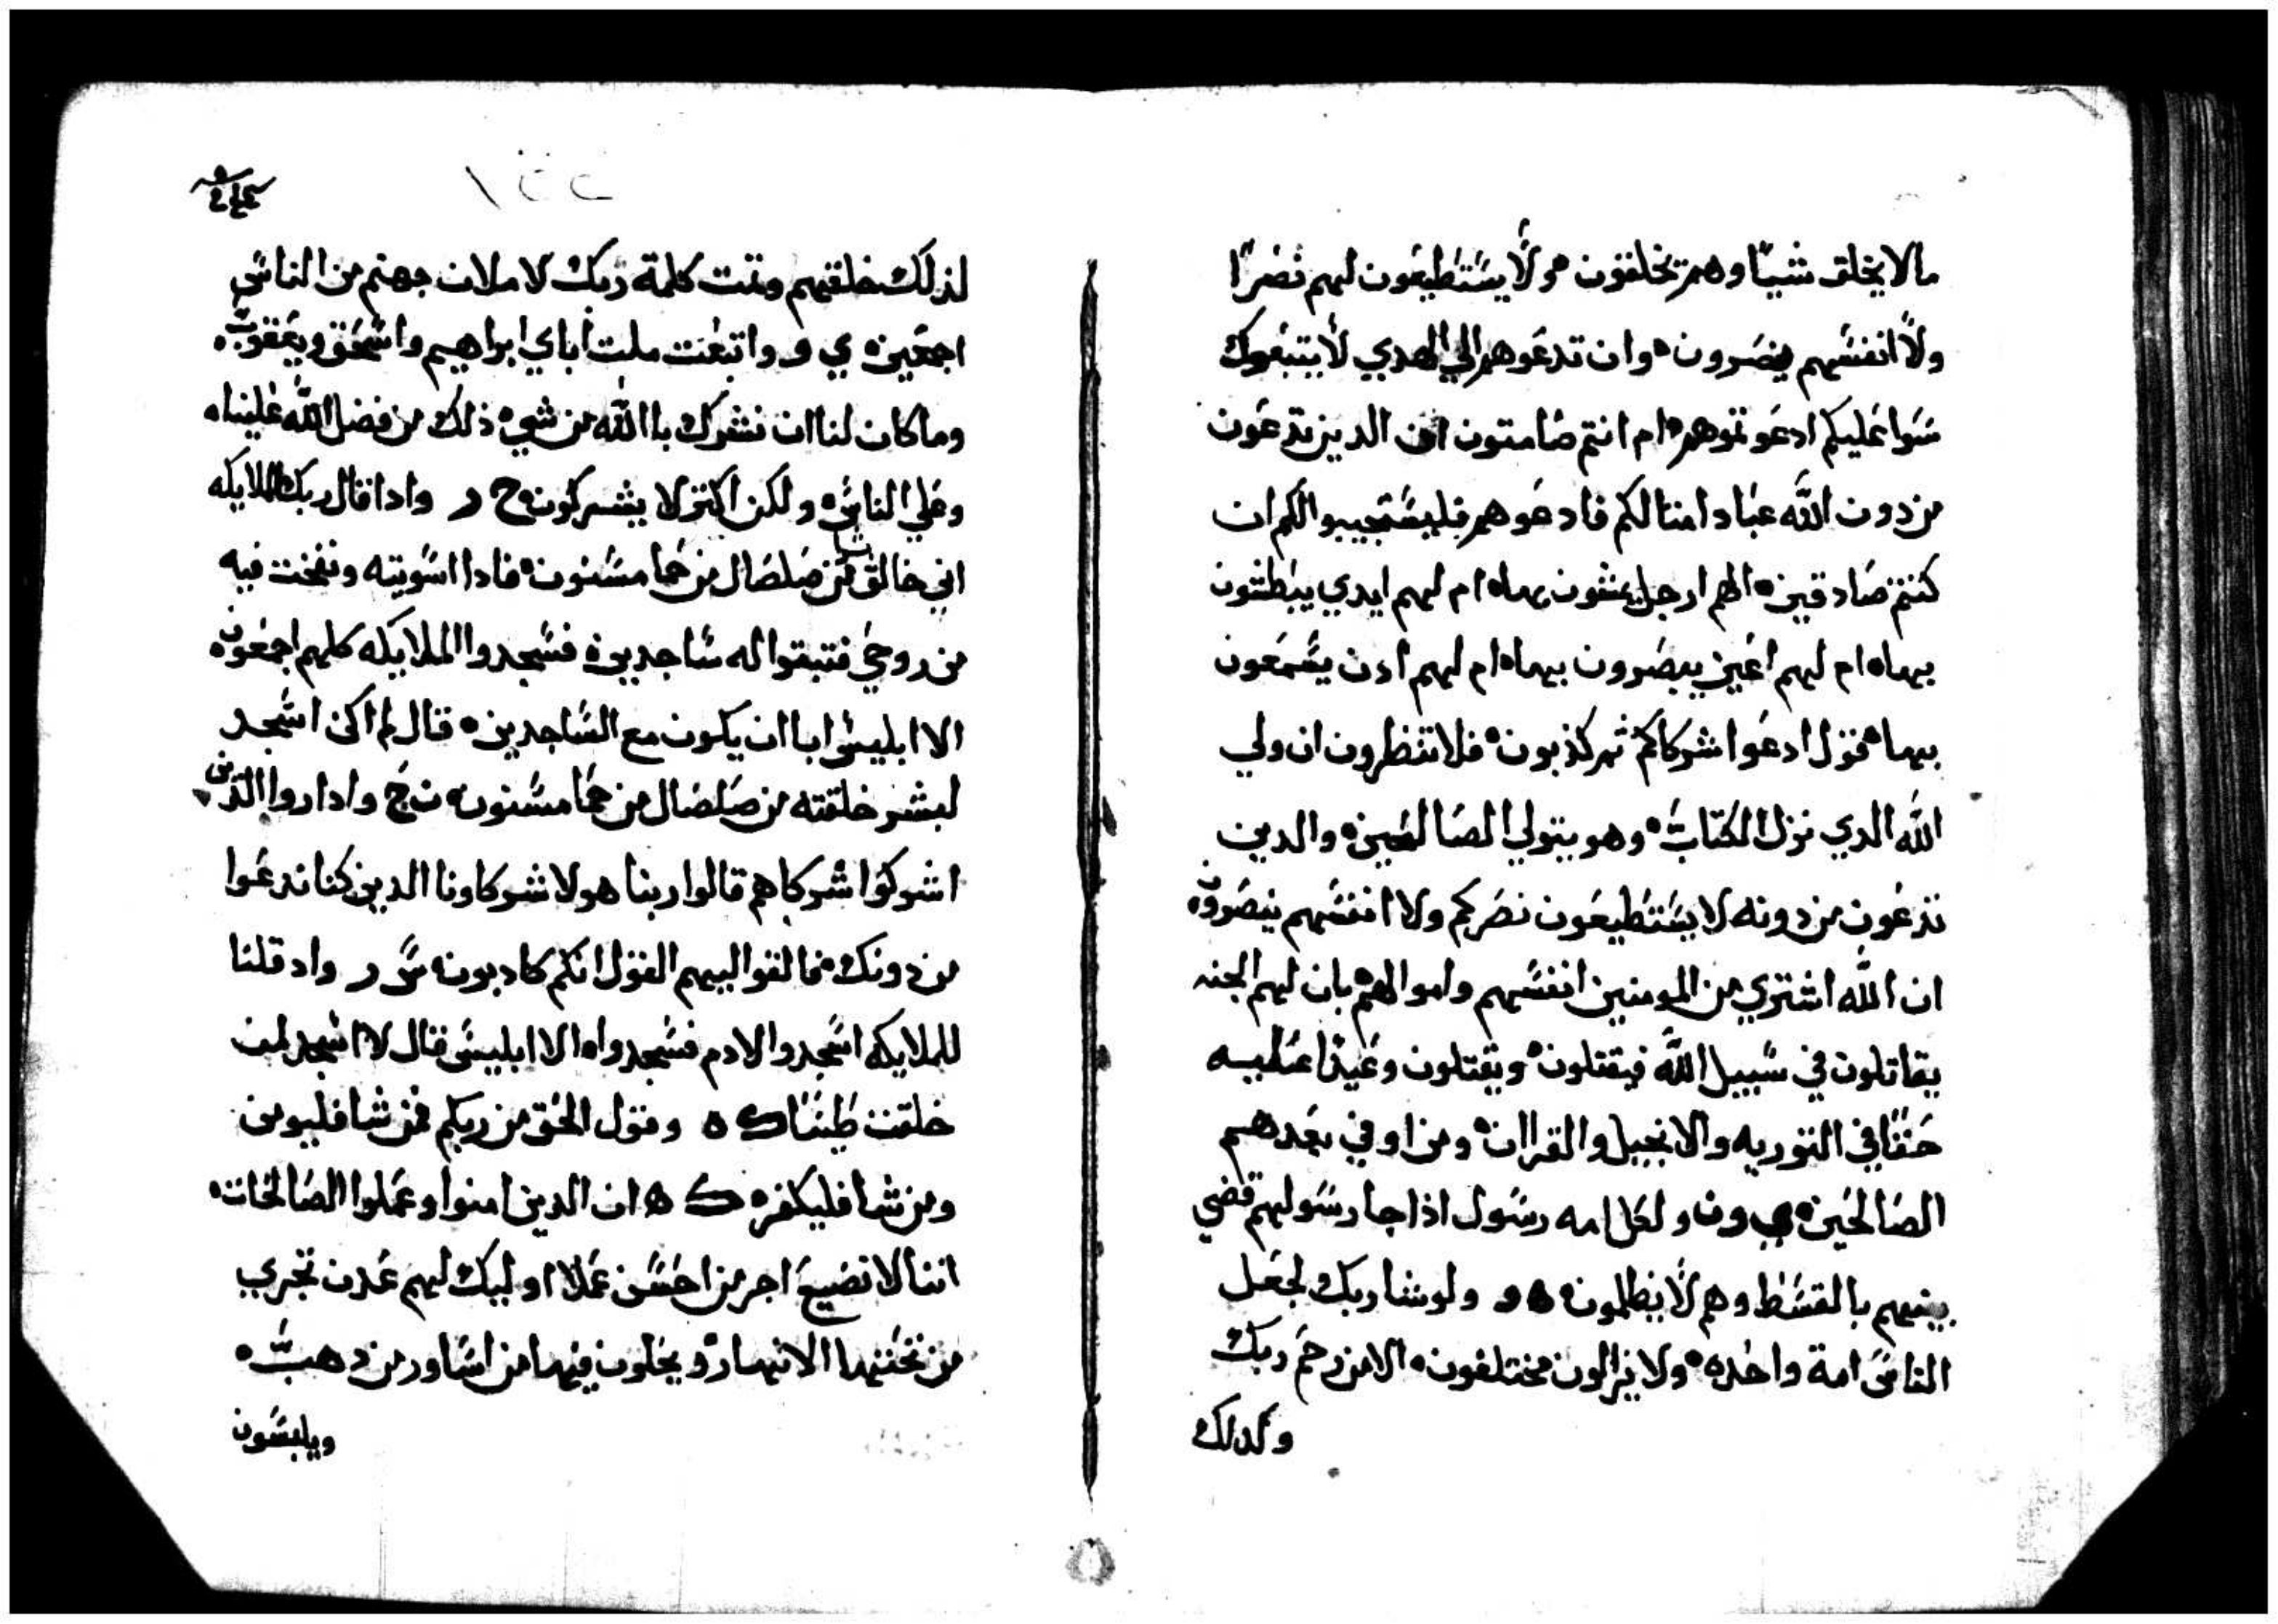 مالا يخلق شيًا وهم تخلقون ه ولا يستطيعون لهم نصرًا
ولا انفسهم ينصرون ه وان تدعوهم الي الهدي لا يتبعوك
سوا عليكم ادعوتموهم ه ام انتم صامتون ان الدين تدعون
من دون الله عبادا امثالكم فادعوهم فليستجيبوا لكم ان
كنتم صادقين ه الهم ارجل يمشون بها ه ام لهم ايدي يبطشون
بها ه ام لهم اعين يبصرون بها ه ام لهم ادن يسمعون
بها ه قول ادعوا شركاكم ثم كذبون ه فلا تنظرون ان ولي
الله الدي نزل الكتاب ه وهو يتولي الصالحين ه والدين
تدعون من دونه لا يستطيعون نصركم ولا انفسهم ينصرون ه
ان الله اشتري من المومنين انفسهم واموالهم ه بان لهم الجنه
يقاتلون في سبيل الله فيقتلون ه ويقتلون وعيدًا عليه
حقًا في التوريه والانجيل والقران ه ومن اوفي بعدهم
الصالحين ه ي ون ولكل امه رسول اذا جا رسولهم قضي
بينهم بالقسط وهم لا يظلمون ه ه و ولو شا ربك لجعل
الناس امة واحده ه ولا يزالون مختلفون ه الا من رحم ربك
وكدلك
لذلك خلقهم وتمت كلمة ربك لاملان جهنم من الناس
اجمعين ه ي و واتبعت ملت اباي ابراهيم واسحق ويعقوب ه
وما كان لنا ان نشرك باالله من شي ه ذلك من فضل الله علينا ه
وعلي الناس ه ولكن اكتر لا يشركون ه ح ر وادا قال ربك للملايكه
اني خالق من صلصال من حما مسنون ه فادا اسويته ونفخت فيه
من روحي فتبقوا له ساجدين ه فسجدوا الملايكه كلهم اجمعون ه
الا ابليس ابا ان يكون مع الساجدين ه قال لم اكن اسجد
لبشر خلقته من صلصال من حما مسنون ه ن ح وادا روا الدين
اشركوا شركاهم قالوا ربنا هولا شركاونا الدين كنا ندعوا
من دونك ه فالقوا اليهم القول انكم كادبون ه س ر واد قلنا
للملايكه اسجدوا لادم فسجدوا ه الا ابليس قال لا اسجد لمن
خلقت طينًا ك ه وقول الحق من ربكم فمن شا فليومن
ومن شا فليكفر ه ك ه ان الدين امنوا وعملوا الصالحات ه
اننا لا نضيع اجر من احسن عملا اوليك لهم عدن تجري
من تحتها الانهار ه ويحلون فيها من اساور من دهب ه
ويلبسون